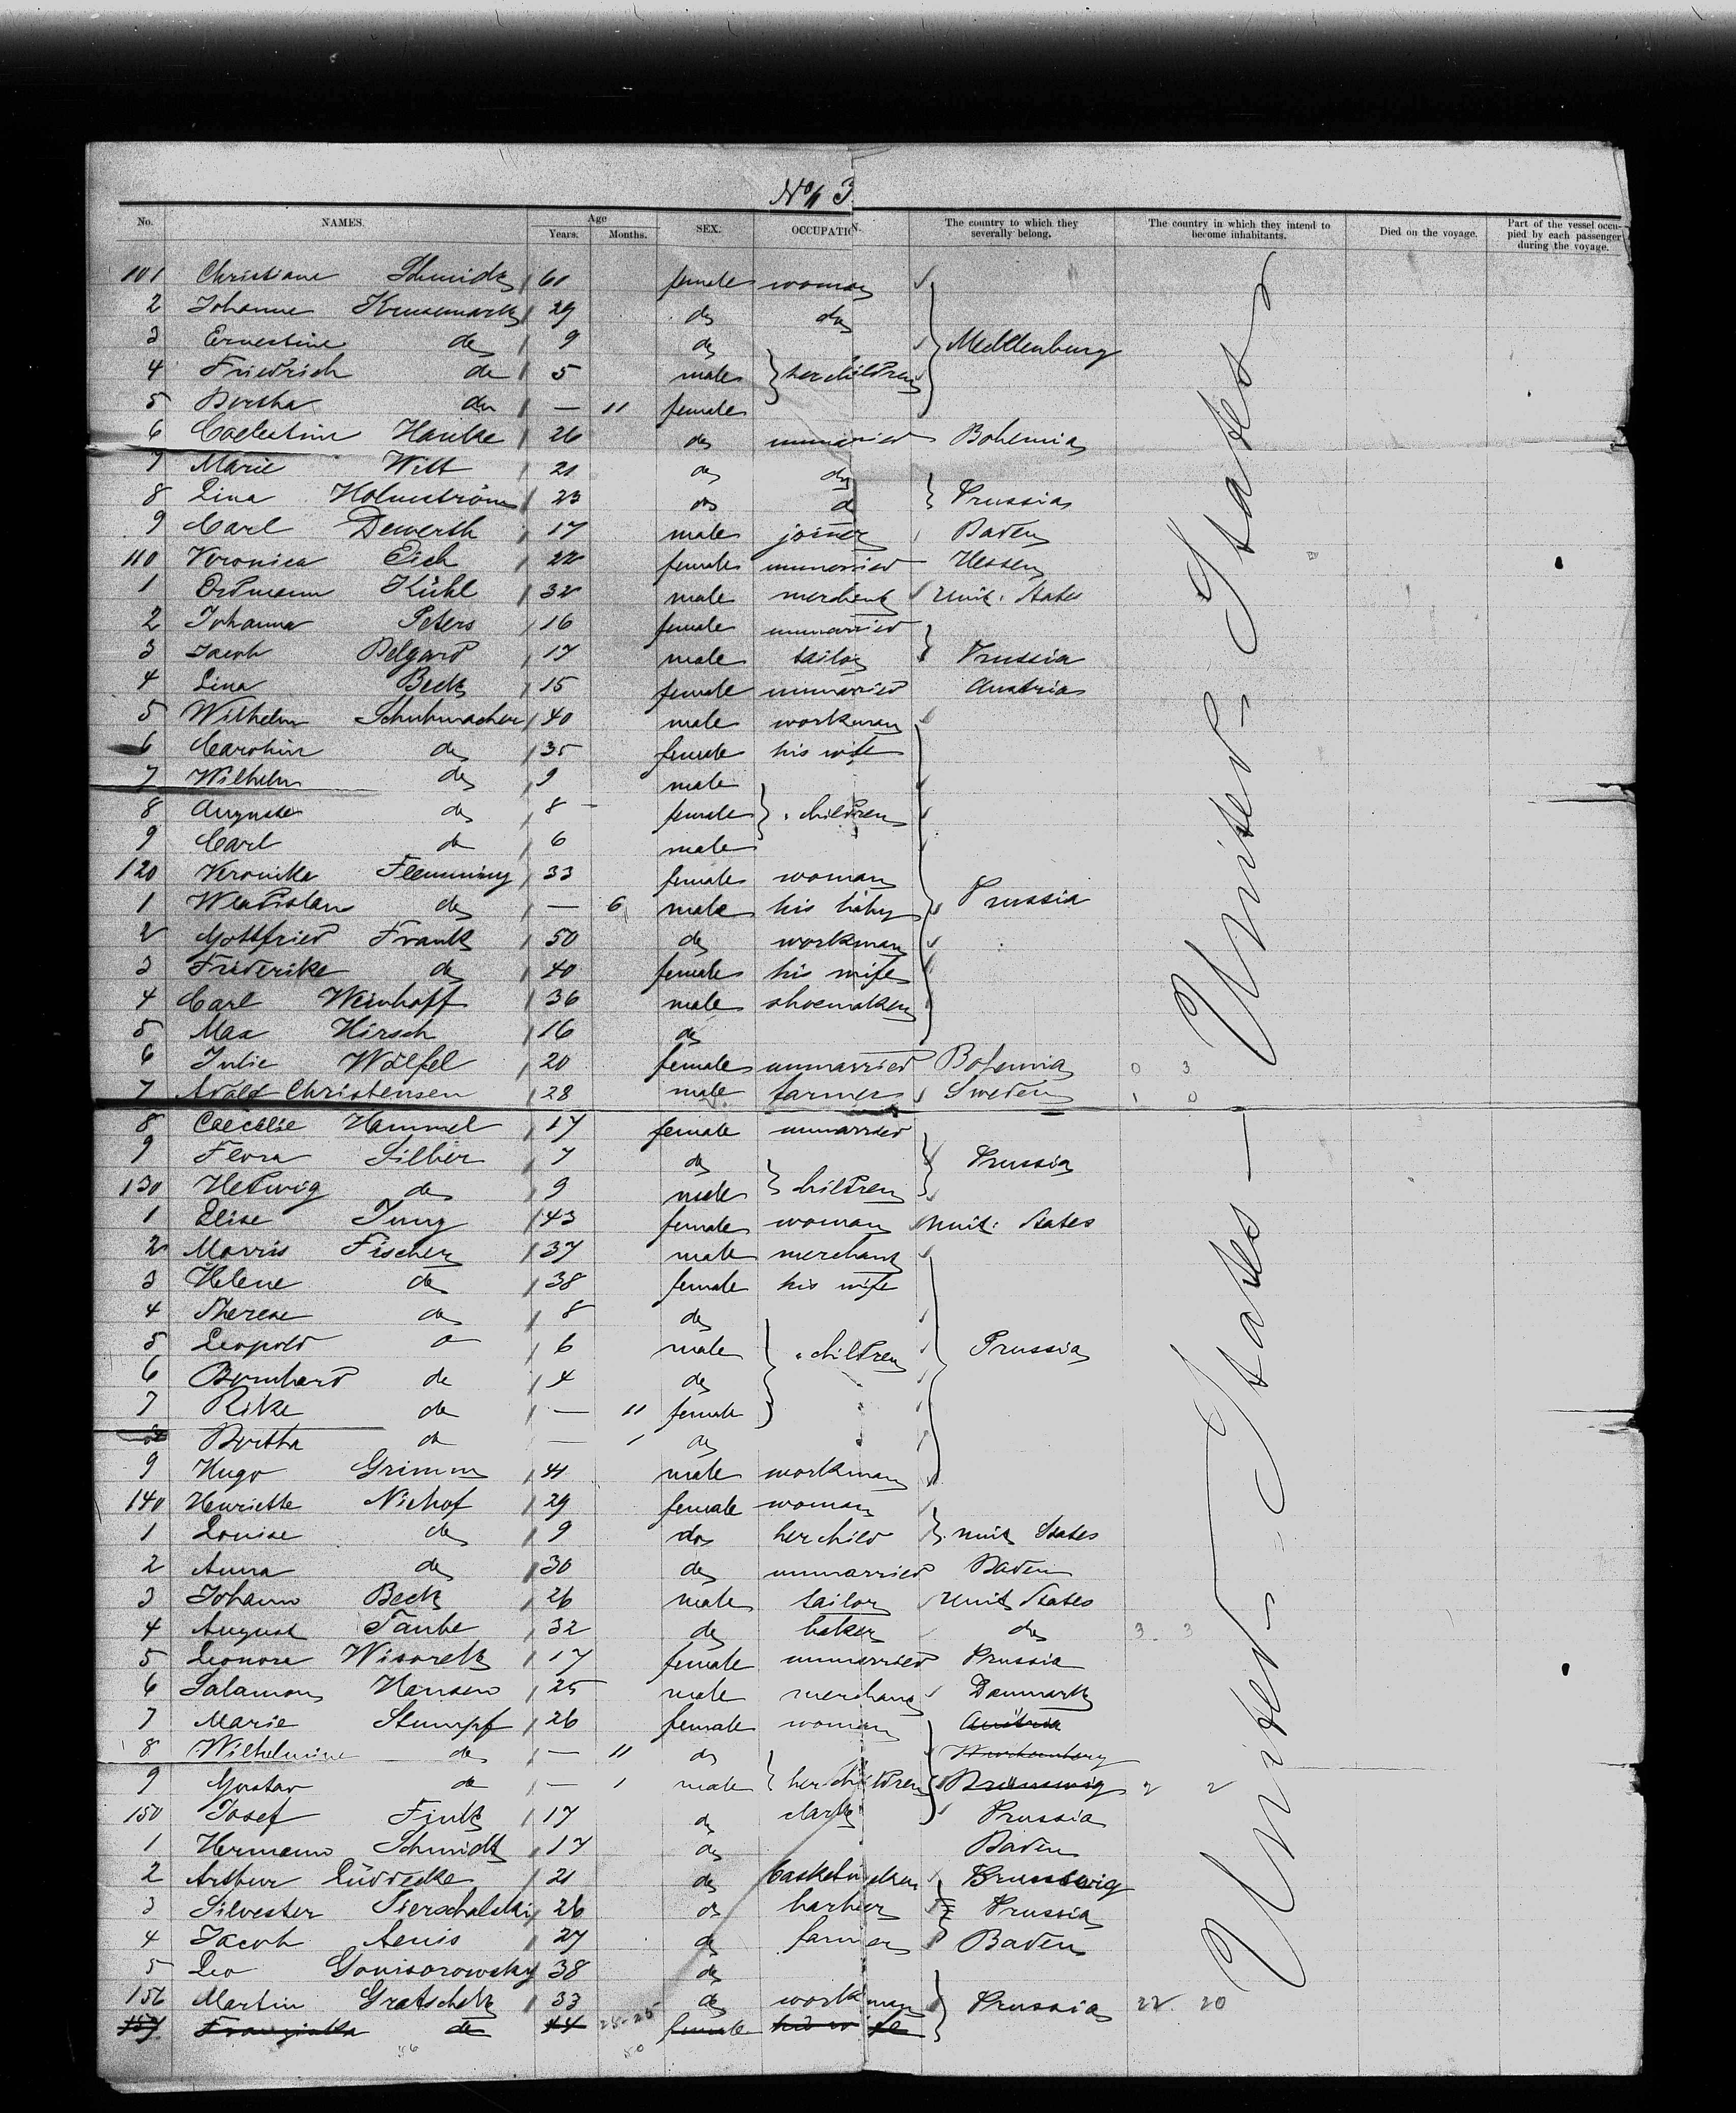 No/ 3
No. NAMES. Age Years. Months. SEX. OCCUPATION. The country to which they severally belong. The country in which they intend to become inhabitants. Died on the voyage. Part of the vessel occupied by each passenger during the voyage.
101 Christiane Schmidt 61 female woman
2 Johanne Krusemark 29 do do
3 Ernestine do 9 do Mecklenburg
4 Friedrich do 5 male her children
5 Bertha do — 11 female
6 Coelestine Hanke 26 do unmarried Bohemia
7 Marie Witt 21 do do
8 Lina Holmström 23 do do Prussia
9 Carl Dewerth 17 male joiner Baden
110 Veronica Eich 22 female unmarried Hessen
1 Ordmann Kühl 32 male merchent Unit. States
2 Johanna Peters 16 female unmarried
3 Jacob Belgard 17 male tailor Prussia
4 Lina Beck 15 female unmarried Austria
5 Wilhelm Schuhmacher 40 male workman
6 Carolin do 35 female his wife
7 Wilhelm do 9 male
8 Auguste do 8 female children
9 Carl do 6 male
120 Veronika Flemming 33 female woman
1 Wladislaw do — 6 male his baby Prussia
2 Gottfried Frank 50 do workman
3 Friderike do 40 female his wife
4 Carl Weinhoff 36 male shoemaker
5 Max Hirsch 16 do
6 Julie Wölfel 20 female unmarried Bohemia 0 3
7 Adolf Christensen 28 male farmer Sweden 1 0
8 Caecilie Hammel 17 female unmarried
9 Flora Silber 7 do Prussia
130 Hedwig do 9 male children
1 Elise Jung 43 female woman Unit: States
2 Morris Fischer 37 male merchant
3 Helene do 38 female his wife
4 Therese do 8 do
5 Leopold do 6 male children Prussia
6 Bernhard do 4 do
7 Rike do — 11 female
8 Bertha do — 1 do
9 Hugo Grimm 41 male workman
140 Henriette Niehof 29 female woman
1 Louise do 9 do her child Unit States
2 Anna do 30 do unmarried Baden
3 Johann Beck 26 male tailor Unit States
4 August Taube 32 do baker do 3 3
5 Leonore Wisorek 17 female unmarried Prussia
6 Salamon Hansen 25 male merchant Danmark
7 Marie Stumpf 26 female woman Austria
8 Wilhelmine do — 11 do Wurtemberg
9 Gustav do — 1 male her children Braunswig 2 2
150 Josef Fink 17 do clark Prussia
1 Hermann Schmidt 17 do Baden
2 Arthur Lüddecke 21 do Brunswig
3 Silvester Sierschalski 26 do barber Prussia
4 Jacob Aenis 27 do farmer Baden
5 Leo Gonisorowsky 38 do
156 Martin Gratschek 33 do workman Prussia 22. 20
157 Franziska do 44 25-25 female his wife
56 50
United = States —
United = States